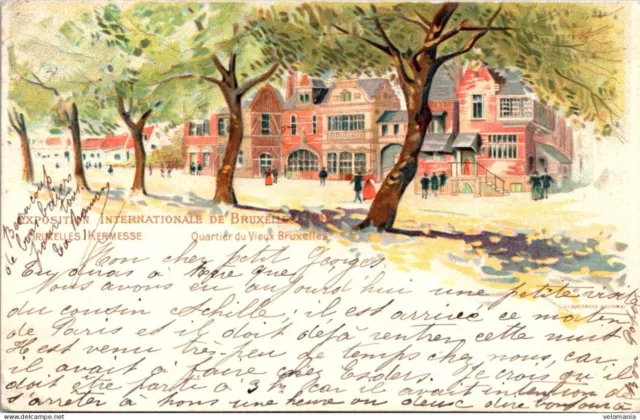 EXPOSITION INTERNATIONALE DE BRUXELLES
BRUXELLES KERMESSE Quartier du Vieux Bruxelles
Beaucoup
de
pour ton
Mon cher petit Georges,
Tu diras à que
Nous avons eu aujourd'hui une petite visite
du cousin Achille; il est arrivé ce matin
de Paris et il doit déjà rentrer cette nuit
Il est venu très-peu de temps chez nous, car
il avait à faire chez Esders. Je crois qu'il
doit être parti à 3 h car il avait intention de
s'arrêter à Mons une heure ou deux
velomania